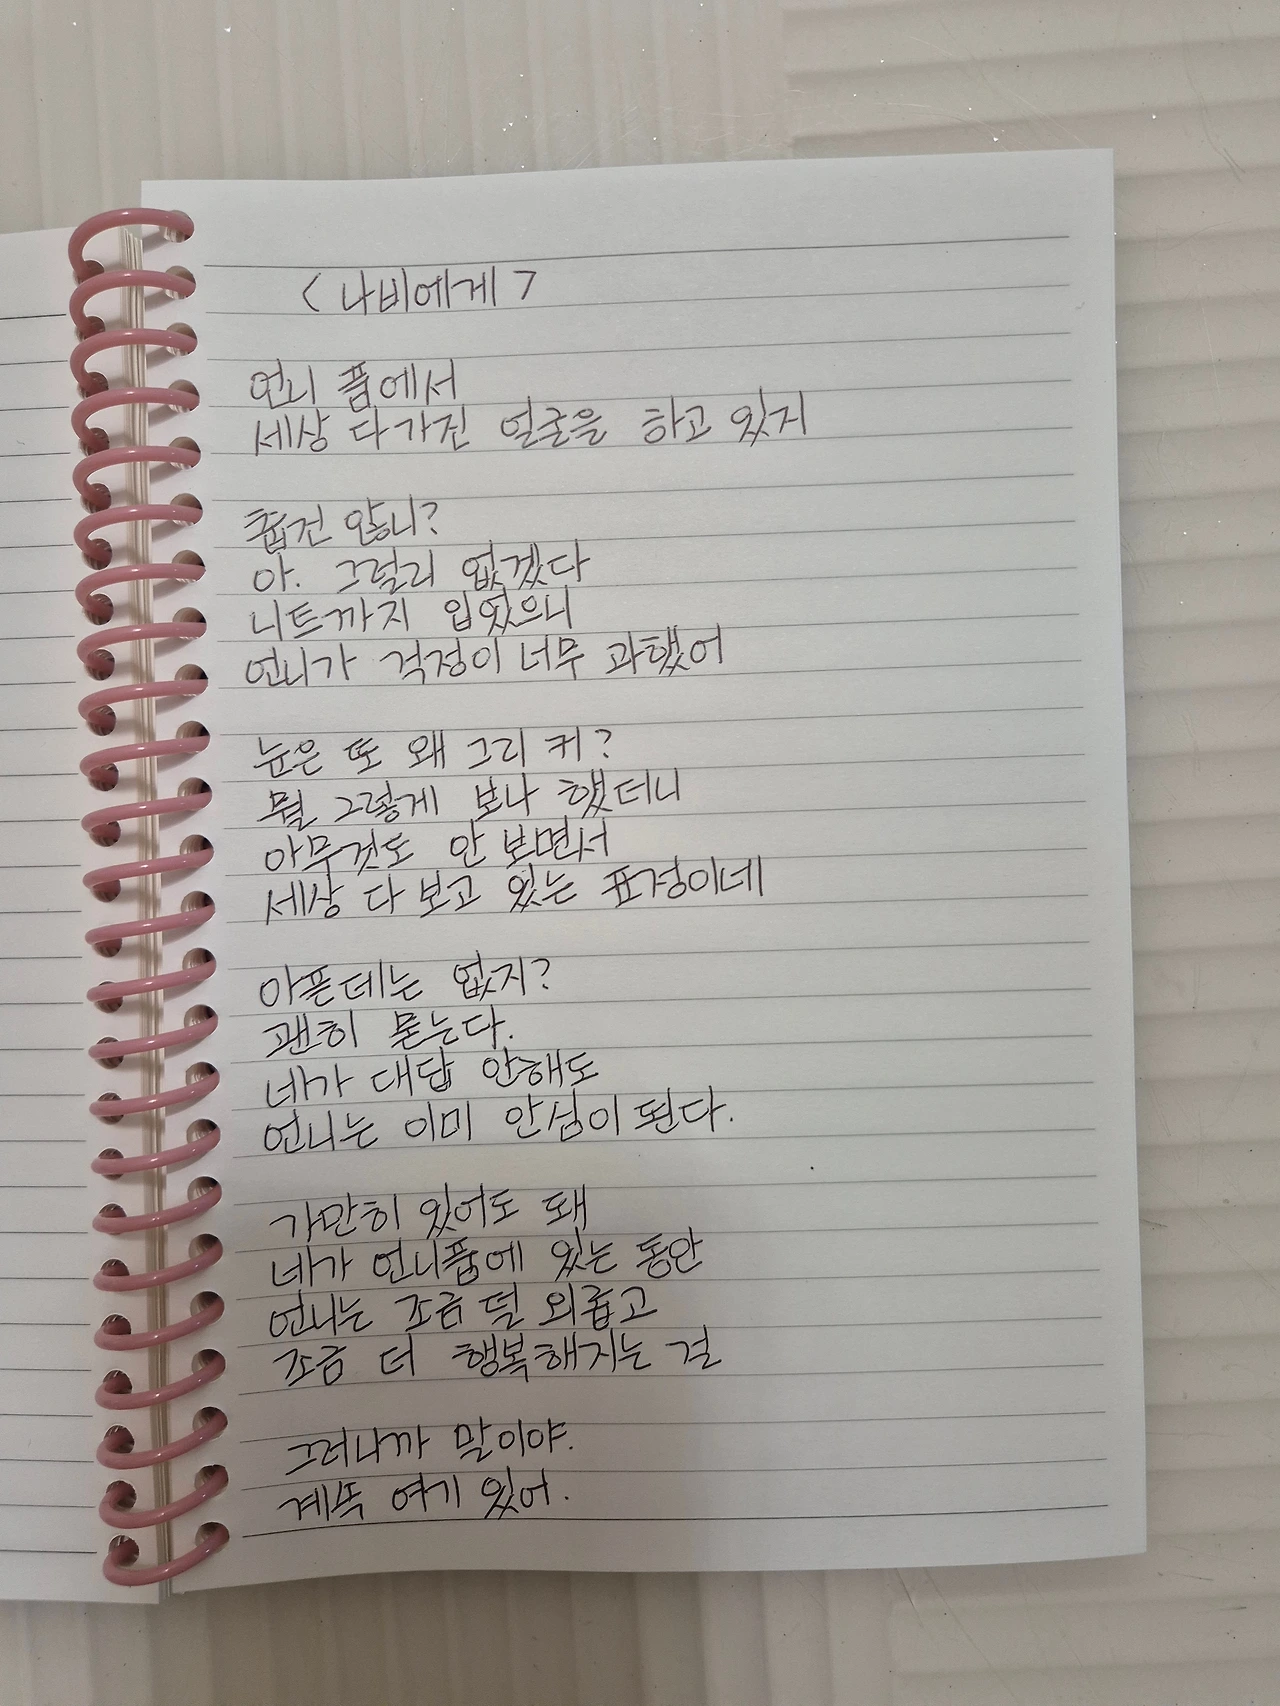 <나비에게>
언니 품에서
세상 다 가진 얼굴을 하고 있지
춥진 않니?
아. 그럴리 없겠다
니트까지 입었으니
언니가 걱정이 너무 과했어
눈은 또 왜 그리 커?
뭘 그렇게 보나 했더니
아무것도 안 보면서
세상 다 보고 있는 표정이네
아픈데는 없지?
괜히 묻는다.
네가 대답 안해도
언니는 이미 안심이 된다.
가만히 있어도 돼
네가 언니품에 있는 동안
언니는 조금 덜 외롭고
조금 더 행복해지는 걸
그러니까 말이야.
계속 여기 있어.